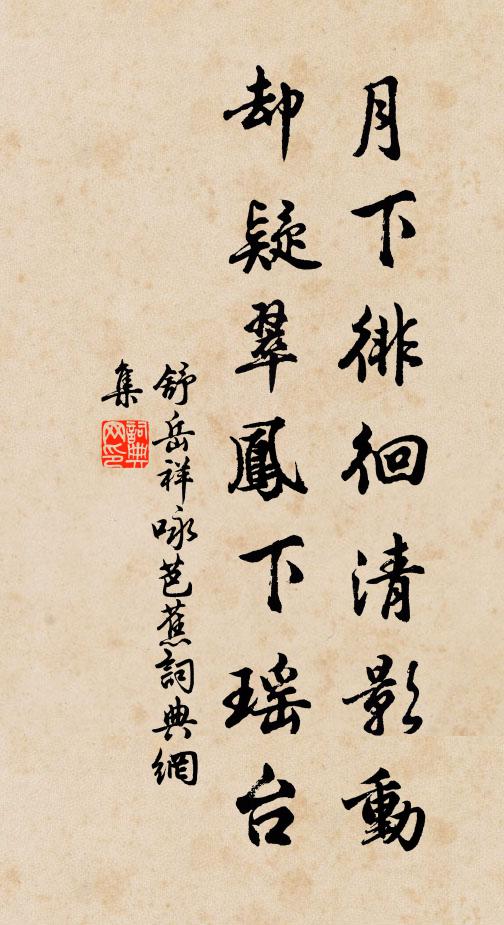 月下徘徊清影動
却疑翠鳳下瑶台
舒岳祥咏芭蕉詞典網
集
詞典網印